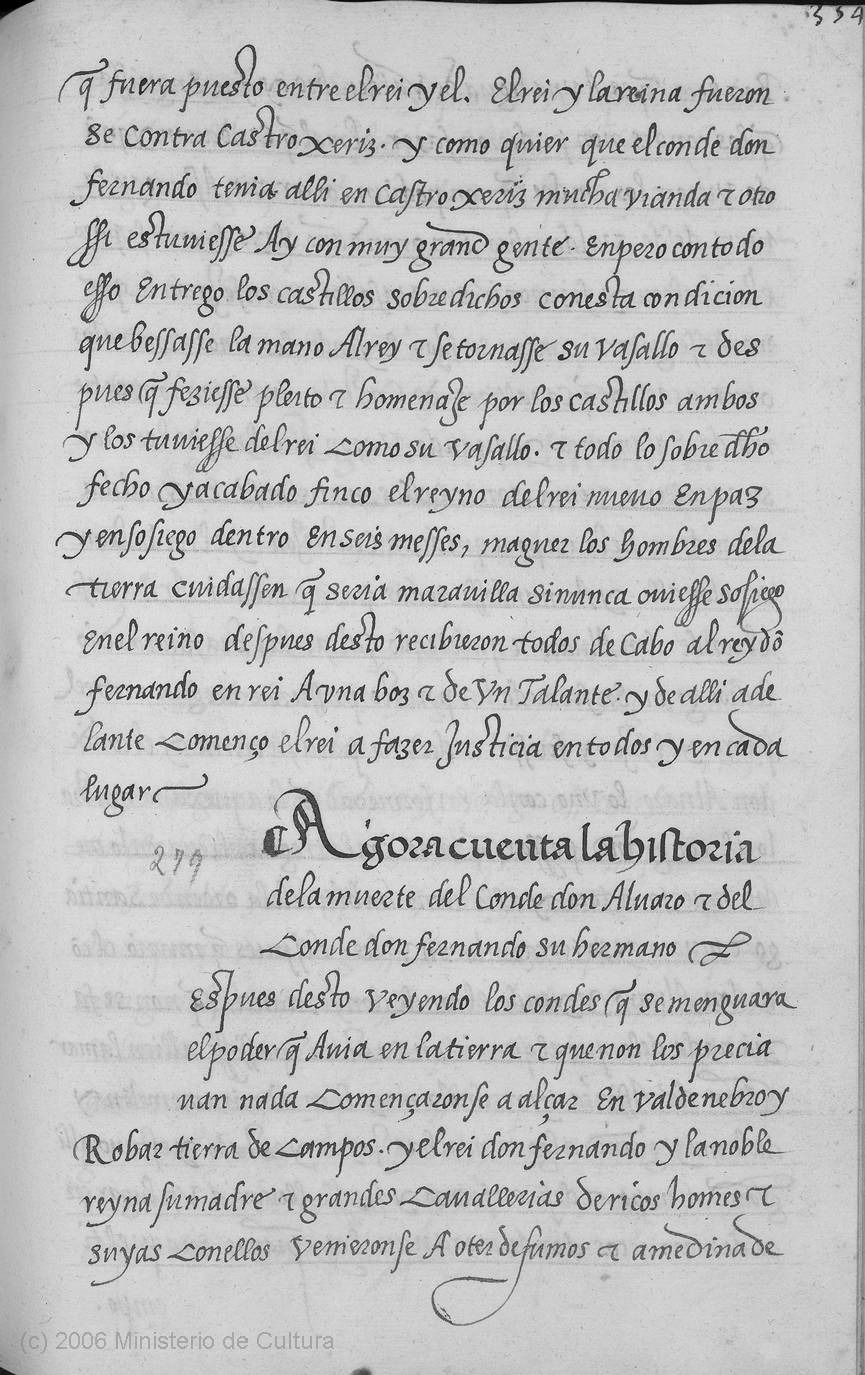 334
q̃ fuera puesto entre el rei y el. El rei y la reina fueron
se contra Castro xeriz. y como quier que el conde don
fernando tenia alli en Castro xeriz mucha vianda τ otro
ssi estuviesse Ay con muy grand gente. Enpero con todo
esso Entrego los castillos sobre dichos con esta condicion
que bessasse la mano Al rey τ se tornasse su vasallo τ des
pues q̃ feziesse pleito τ homenaje por los castillos ambos
y los tuviesse del rei Como su vasallo. τ todo lo sobre dh̃o
fecho y acabado finco el reyno del rei nuevo En paz
y en sosiego dentro En seis messes, maguer los hombres de la
tierra cuidassen q̃ seria maravilla si nunca oviesse sosiego
En el reino despues desto recibieron todos de Cabo al rey dõ
fernando en rei A vna boz τ de Vn Talante. y de alli ade
lante Començo el rei a fazer Justicia en todos y en cada
lugar
279
Agora cuenta la historia
de la muerte del Conde don Alvaro τ del
Conde don fernando su hermano
Espues desto Veyendo los condes q̃ se menguara
el poder q̃ Avia en la tierra τ que non los precia
van nada Començaronse a alçar En valdenebro y
Robar tierra de Campos. y el rei don fernando y la noble
reyna su madre τ grandes Cavallerias de ricos homes τ
suyas Con ellos Venieronse A oter de fumos τ a medina de
(c) 2006 Ministerio de Cultura